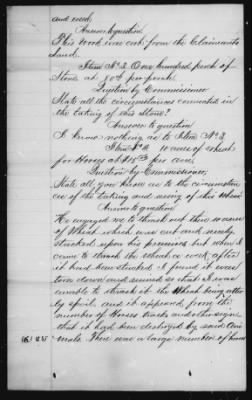 and used.
Answer to question
This wood was cut from the Claimants
land.
Item No 3 One hundred perch of
Stone at 50cts per perch
Question by Commissioner
State all the circumstances connected in
the taking of this Stone?
Answer to question
I know nothing as to Item No 3
Item No 4 10 acres of wheat
for Horses at $15 00 per acre
Question by Commissioner;
State all you know as to the circumstan
ces of the taking and using of this Wheat
Answer to question
He engaged me to thrash out this 10 acres
of Wheat which was cut and newly
stacked upon his premises but when I
came to thrash the wheat a week after
it had been stacked I found it was
torn down and ruined so that I was
unable to thrash it the Wheat being utter
ly spoilt and it appeared from the
number of Horses tracks and other signs
that it had been destroyed by said Ani
mals There was a large number of horses